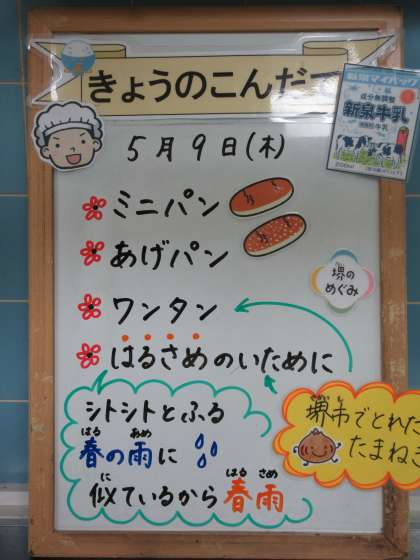 きょうのこんだて
成分無調整
新泉牛乳
200ml
5月9日(木)
ミニパン
あげパン
堺の
めぐみ
ワンタン
はるさめのいために
堺市でとれた
たまねぎ
シトシトとふる
はる あめ
春の雨に
に はる さめ
似ているから春雨